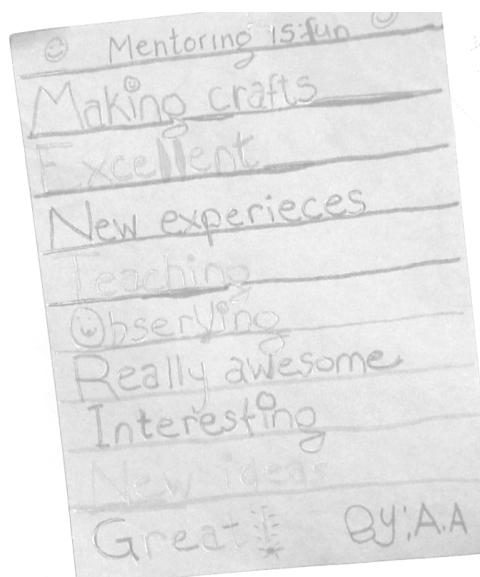 Mentoring is:fun
Making crafts
Excellent
New experieces
Teaching
Observing
Really awesome
Interesting
New ideas
Great!
By;A.A